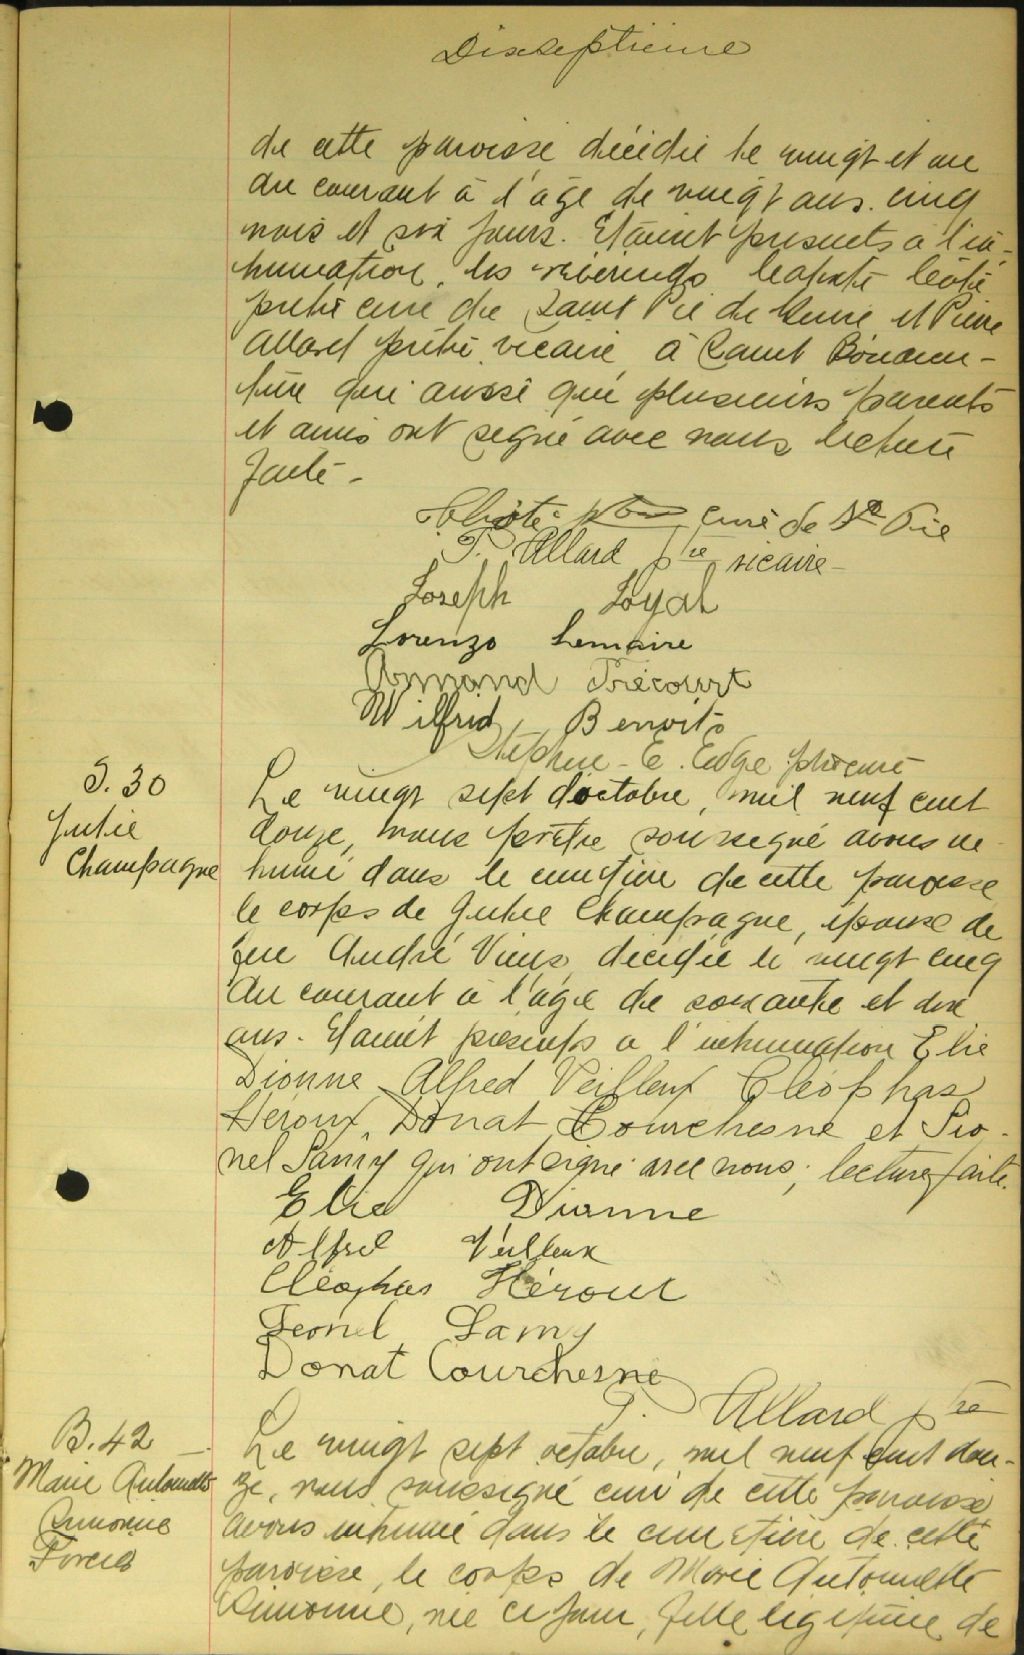 Dixseptième
de cette paroisse décédée le vingt et un
du courant à l'âge de vingt ans. cinq
mois et six jours. Etaient présents à l'in-
humation, les révérends Côté
prêtre curé de Saint Pie de Guire et Pierre
Allard prêtre vicaire à Saint Bonaven-
ture qui aussi que plusieurs parents
et amis ont signé avec nous lecture
faite -
Côté ptre curé de St Pie
P. Allard ptre vicaire -
Joseph Loyal
Lorenzo Lemaire
Armand Précourt
Wilfrid Benoit
Stephen - E. Edge ptre curé
S. 30
Julie
Champagne
Le vingt sept d'octobre, mil neuf cent
douze, nous prêtre soussigné avons in-
humé dans le cimetière de cette paroisse
le corps de Julie Champagne, épouse de
feu André décédée le vingt cinq
du courant à l'âge de soixante et dix
ans. Etaient présents à l'inhumation Elie
Dionne Alfred Veilleux Cléophas
Héroux, Donat Courchesne et Lio-
nel Lamy qui ont signé avec nous, lecture faite.
Elie Dionne
Alfred Veilleux
Cléophas Héroux
Leonel Lamy
Donat Courchesne
P. Allard ptre
B. 42
Marie Antoinette
Simonne
Forcier
Le vingt sept octobre, mil neuf cent dou-
ze, nous soussigné curé de cette paroisse
avons inhumé dans le cimetière de cette
paroisse, le corps de Marie Antoinette
Simonne, née ce jour, fille légitime de